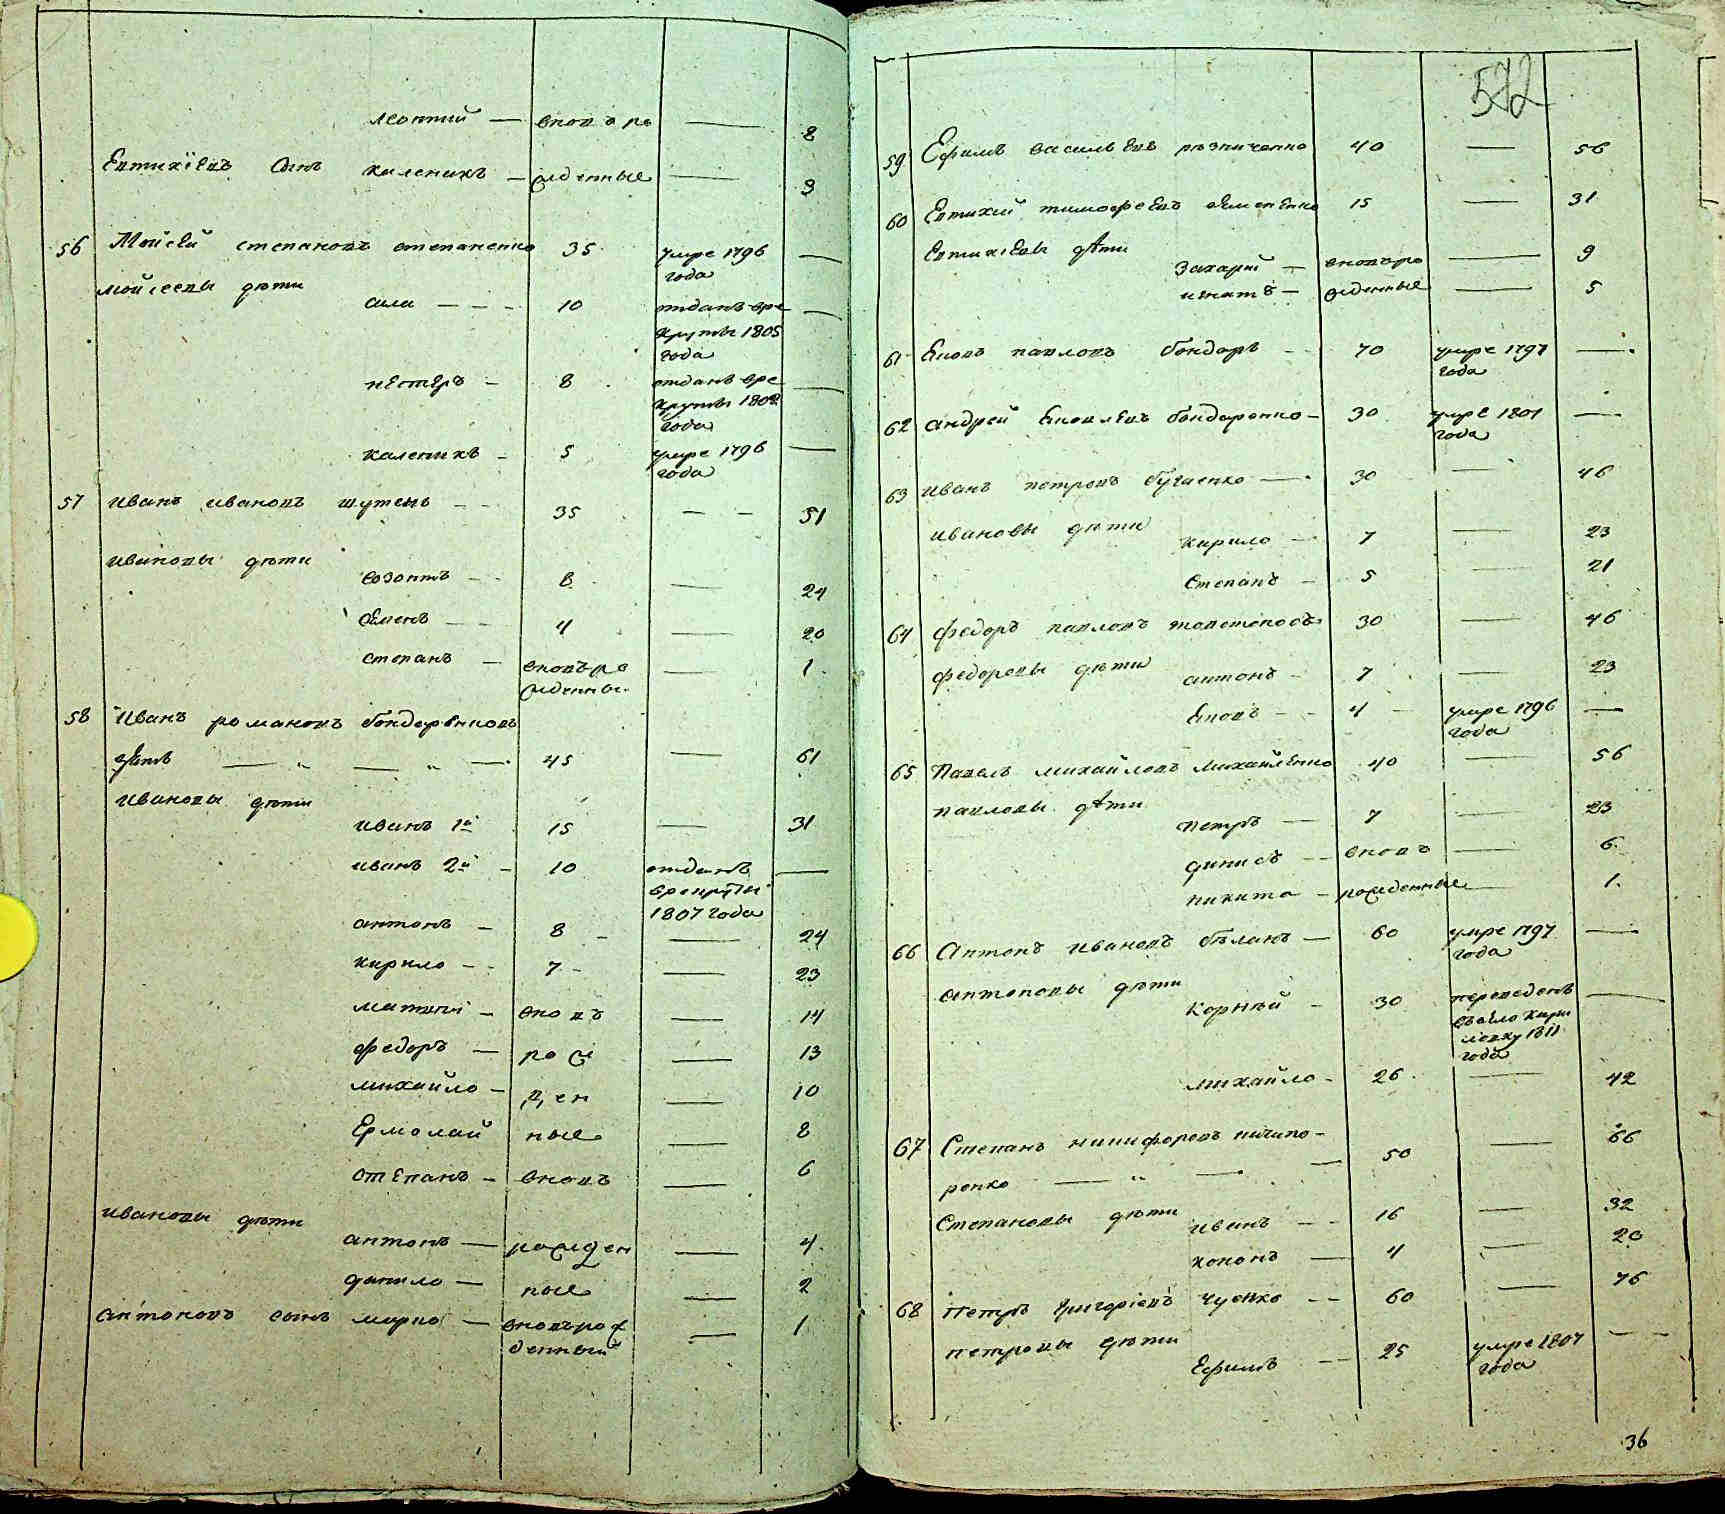 леонтий — вновъ ро — 8
Евтихіевъ сынъ каленикъ — жденные — 3
56 Мойсей степановъ степаненко 35 умре 1796 —
года
мойсеевы дѣти
сила — — — 10 отданъ вре —
круты 1805
года
нестеръ — 8 отданъ вре —
круты 1808
года
каленикъ — 5 умре 1796 —
года
57 иванъ ивановъ шутень — — 35 — — 51
ивановы дѣти
созонтъ — — 8 — 24
семенъ — — 4 — 20
степанъ — вновъ ро — 1
жденны
58 иванъ романовъ бондаренковъ
зять — „ — „ — 45 — 61
ивановы дѣти
иванъ 1й 15 — 31
иванъ 2й — 10 отданъ —
врекруты
1807 года
антонъ — 8 — — 24
кирило — — 7 — — 23
матвій — вновъ — 14
федоръ — ро ж — 13
михайло — д, ен — 10
Ермолай ные — 8
степанъ — вновъ — 6
ивановы дѣти
антонъ — рожден — 4
данило — ные — 2
антоновъ сынъ марко — вновърож — 1
денный
572
59 Ефимъ васильевъ резниченко 40 — 56
60 Евтихий тимофеевъ семененко 15 — 31
Евтихіевы дѣти
захарий — вновъро — 9
игнатъ — жденные — 5
61 Яковъ павловъ бондарь — — 70 умре 1797 —
года
62 андрей Яковлевъ бондаренко — 30 умре 1801 —
года
63 иванъ петровъ бугаенко — 30 — 46
ивановы дѣти
кирило — 7 — 23
степанъ — 5 — 21
64 федоръ павловъ товстоносъ 30 — 46
федоровы дѣти
антонъ — 7 — 23
Яковъ — — 4 — умре 1796 —
года
65 Павелъ михайловъ михайленко 40 — 56
павловы дѣти
петръ — 7 — 23
динисъ — — вновъ — 6
никита — рожденные — 1
66 Антонъ ивановъ бѣланъ — 60 умре 1797 —
года
антоновы дѣти
корнѣй — 30 переведенъ —
въ село кири
ловку 1811
года
михайло — 26 — 42
67 Степанъ никифоровъ ничипо-
ренко — „ — — 50 — 66
Степановы дѣти
иванъ — — 16 — 32
кононъ — 4 — 20
68 петръ григоріевъ чуенко — — 60 — 76
петровы дѣти
Ефимъ — — 25 умре 1807 — —
года
36